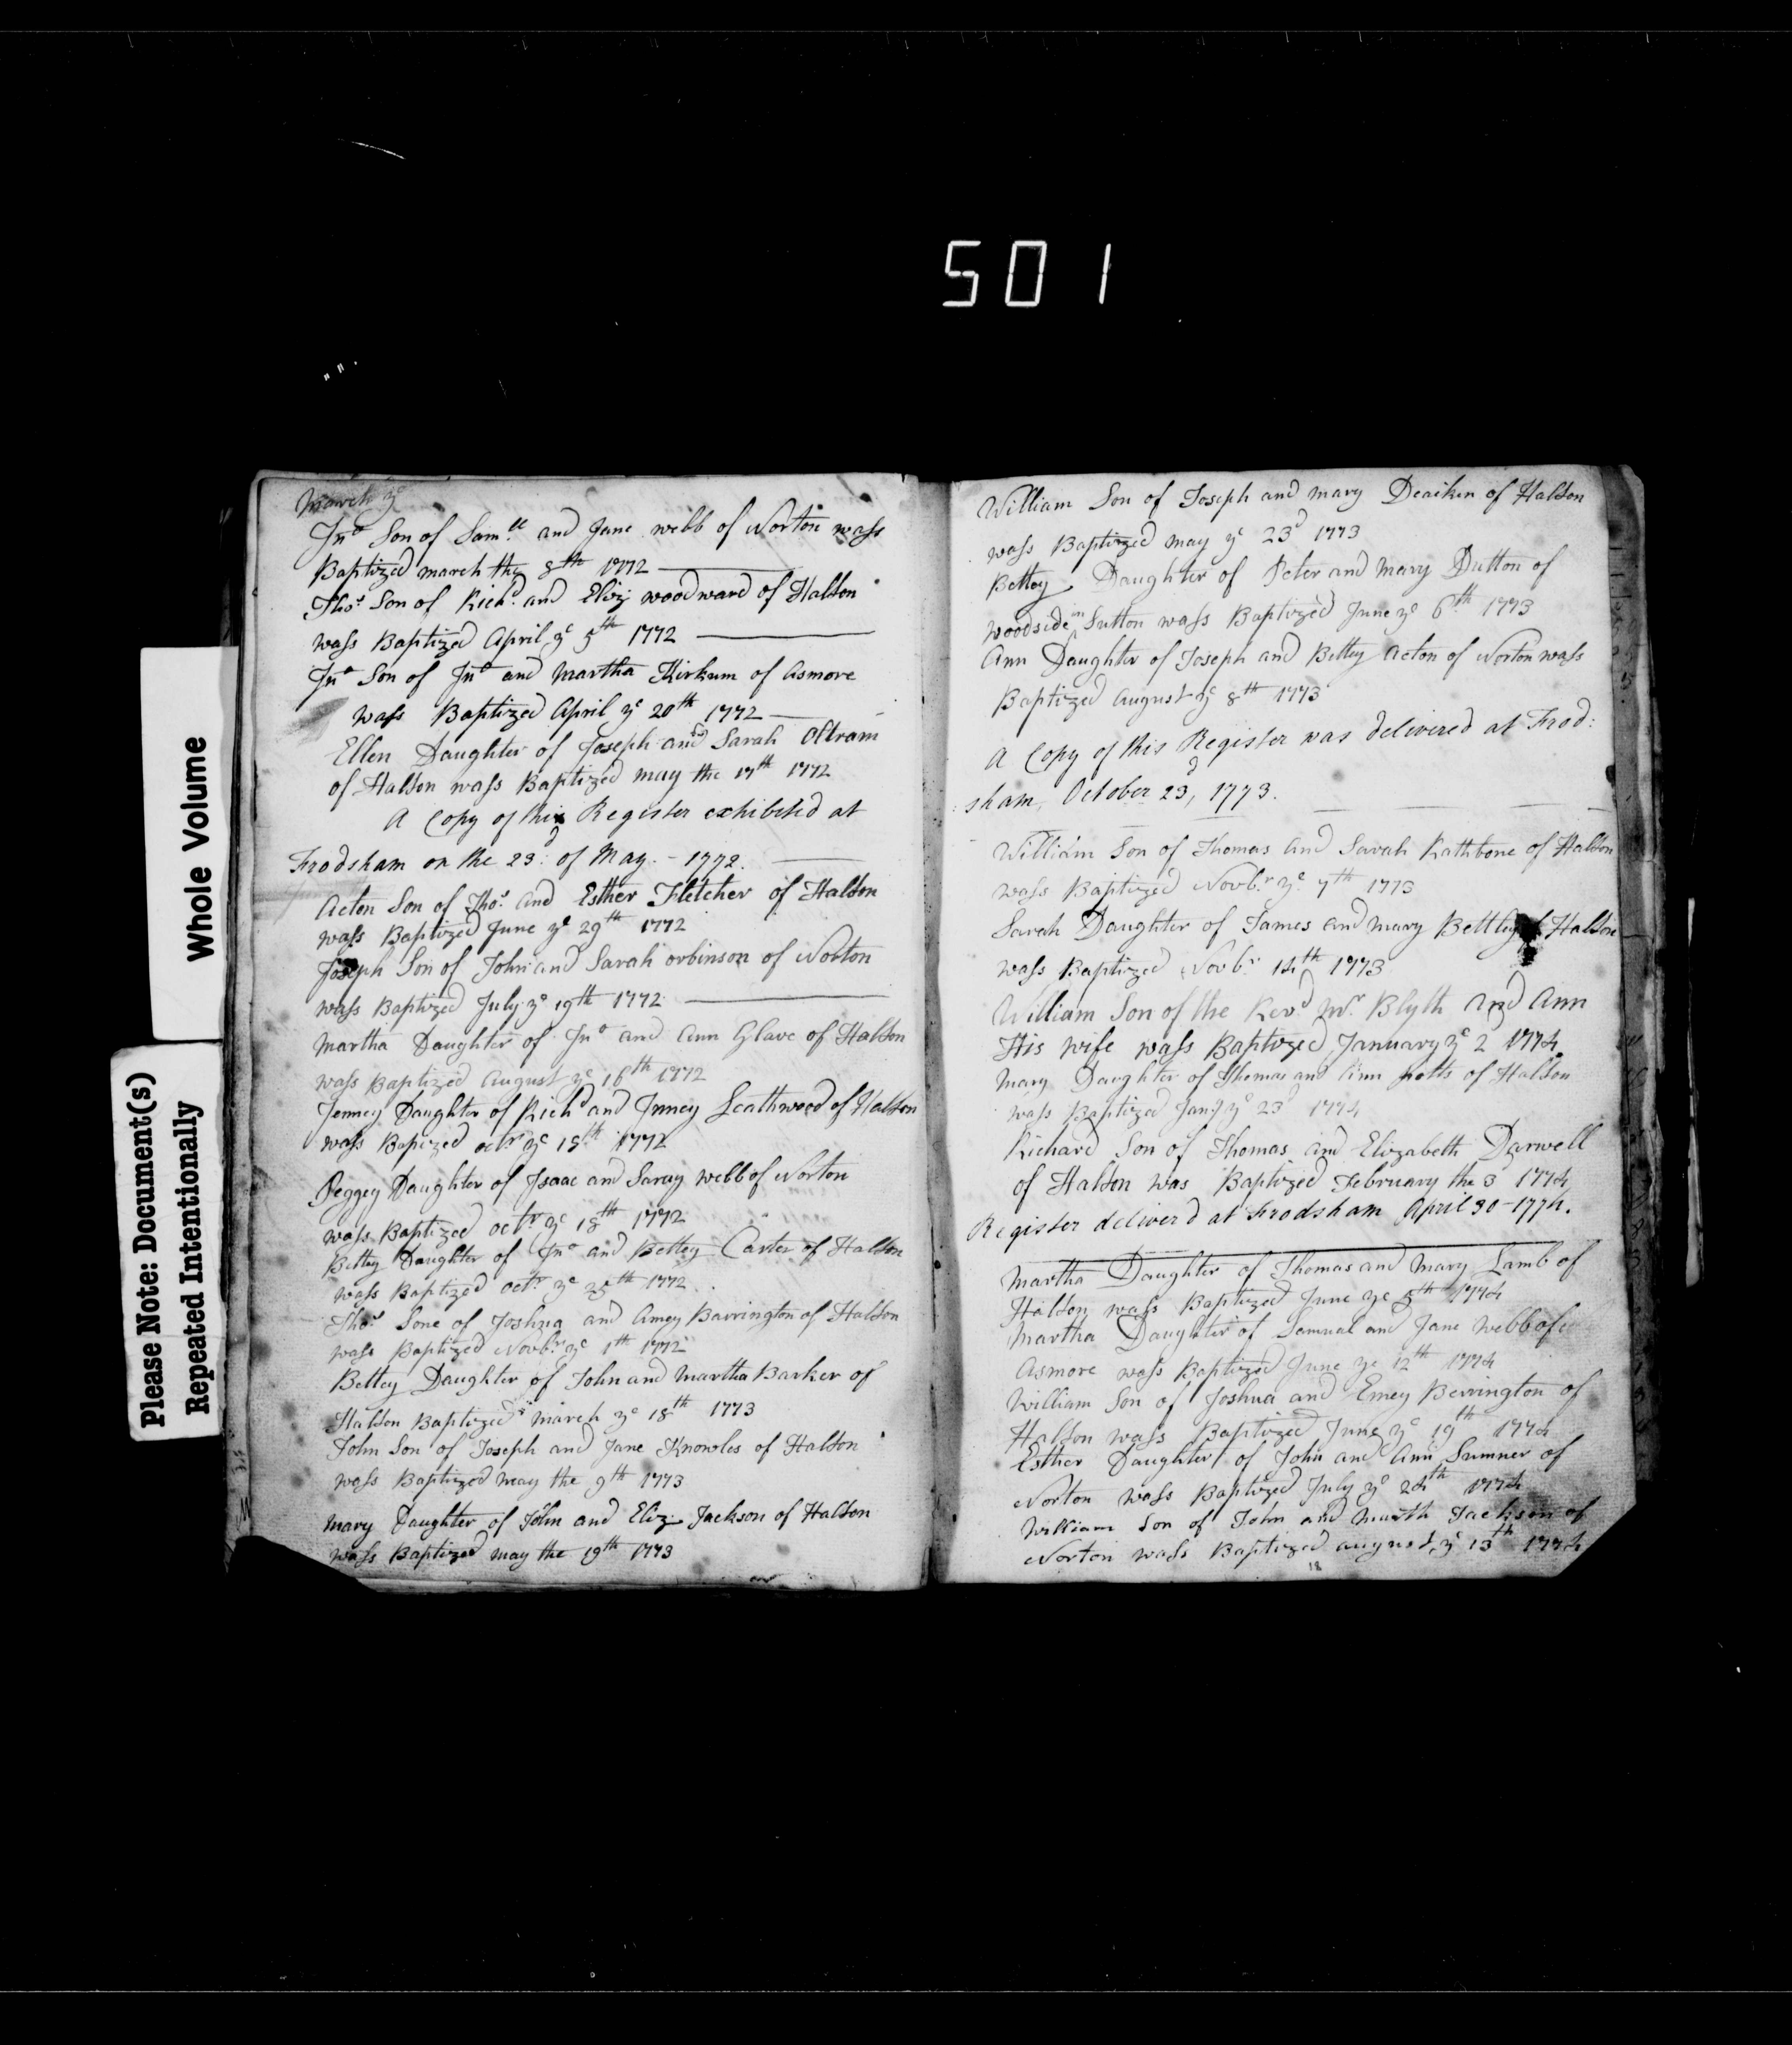 501
Please Note: Document(s)
Repeated Intentionally
Whole Volume
March ye
Jno Son of Samll and Jane webb of Norton wass
Baptized march the 8th 1772
Thos Son of Richd and Eliz woodward of Halton
wass Baptized April ye 5th 1772
Jno Son of Jno and Martha Kirkum of Asmore
wass Baptized April ye 20th 1772
Ellen Daughter of Joseph and Sarah Oltram
of Halton wass Baptized may the 17th 1772
A Copy of this Register exhibited at
Frodsham on the 23d of May - 1772.
Acton Son of Thos and Esther Fletcher of Halton
wass Baptized June ye 29th 1772
Joseph Son of John and Sarah orbinson of Norton
wass Baptized July ye 19th 1772
Martha Daughter of Jno and Ann Glave of Halton
wass Baptized August ye 16th 1772
Jenney Daughter of Richd and Jnney Leathwood of Halton
wass Baptized octr ye 18th 1772
Peggey Daughter of Isaac and Saray webb of Norton
wass Baptized octr ye 18th 1772
Bettey Daughter of Jno and Bettey Carter of Halton
wass Baptized octr ye 25th 1772
Thos Sone of Joshua and Amey Barrington of Halton
wass Baptized Novbr ye 1th 1772
Bettey Daughter of John and Martha Barker of
Halton Baptized march ye 18th 1773
John Son of Joseph and Jane Knowles of Halton
wass Baptized may the 9th 1773
Mary Daughter of John and Eliz Jackson of Halton
wass Baptized may the 19th 1773
William Son of Joseph and mary Deaiken of Halton
wass Baptized may ye 23d 1773
Bettey Daughter of Peter and Mary Dutton of
woodside in Sutton wass Baptized June ye 6th 1773
Ann Daughter of Joseph and Bettey Acton of Norton wass
Baptized August ye 8th 1773
A Copy of this Register was delivered at Frod:
sham, October 23d, 1773.
William Son of Thomas and Sarah Rathbone of Halton
wass Baptized Novbr ye 7th 1773
Sarah Daughter of James and mary Bettley Halton
wass Baptized Novbr 14th 1773
William Son of the Revd Mr Blyth and Ann
His wife wass Baptized January ye 2 1774
Mary Daughter of Thomas and Ann potts of Halton
wass Baptized Jany ye 23d 1774
Richard Son of Thomas and Elizabeth Darwell
of Halton was Baptized February the 3 1774
Register deliver'd at Frodsham April 30-1774.
Martha Daughter of Thomas and Mary Lamb of
Halton wass Baptized June ye 5th 1774
Martha Daughter of Samual and Jane Webb of
Asmore wass Baptized June ye 12th 1774
William Son of Joshua and Emey Berrington of
Halton wass Baptized June ye 19th 1774
Esther Daughter of John and Ann Sumner of
Norton wass Baptized July ye 24th 1774
William Son of John and Jackson of
Norton wass Baptized august ye 13th 1774
18